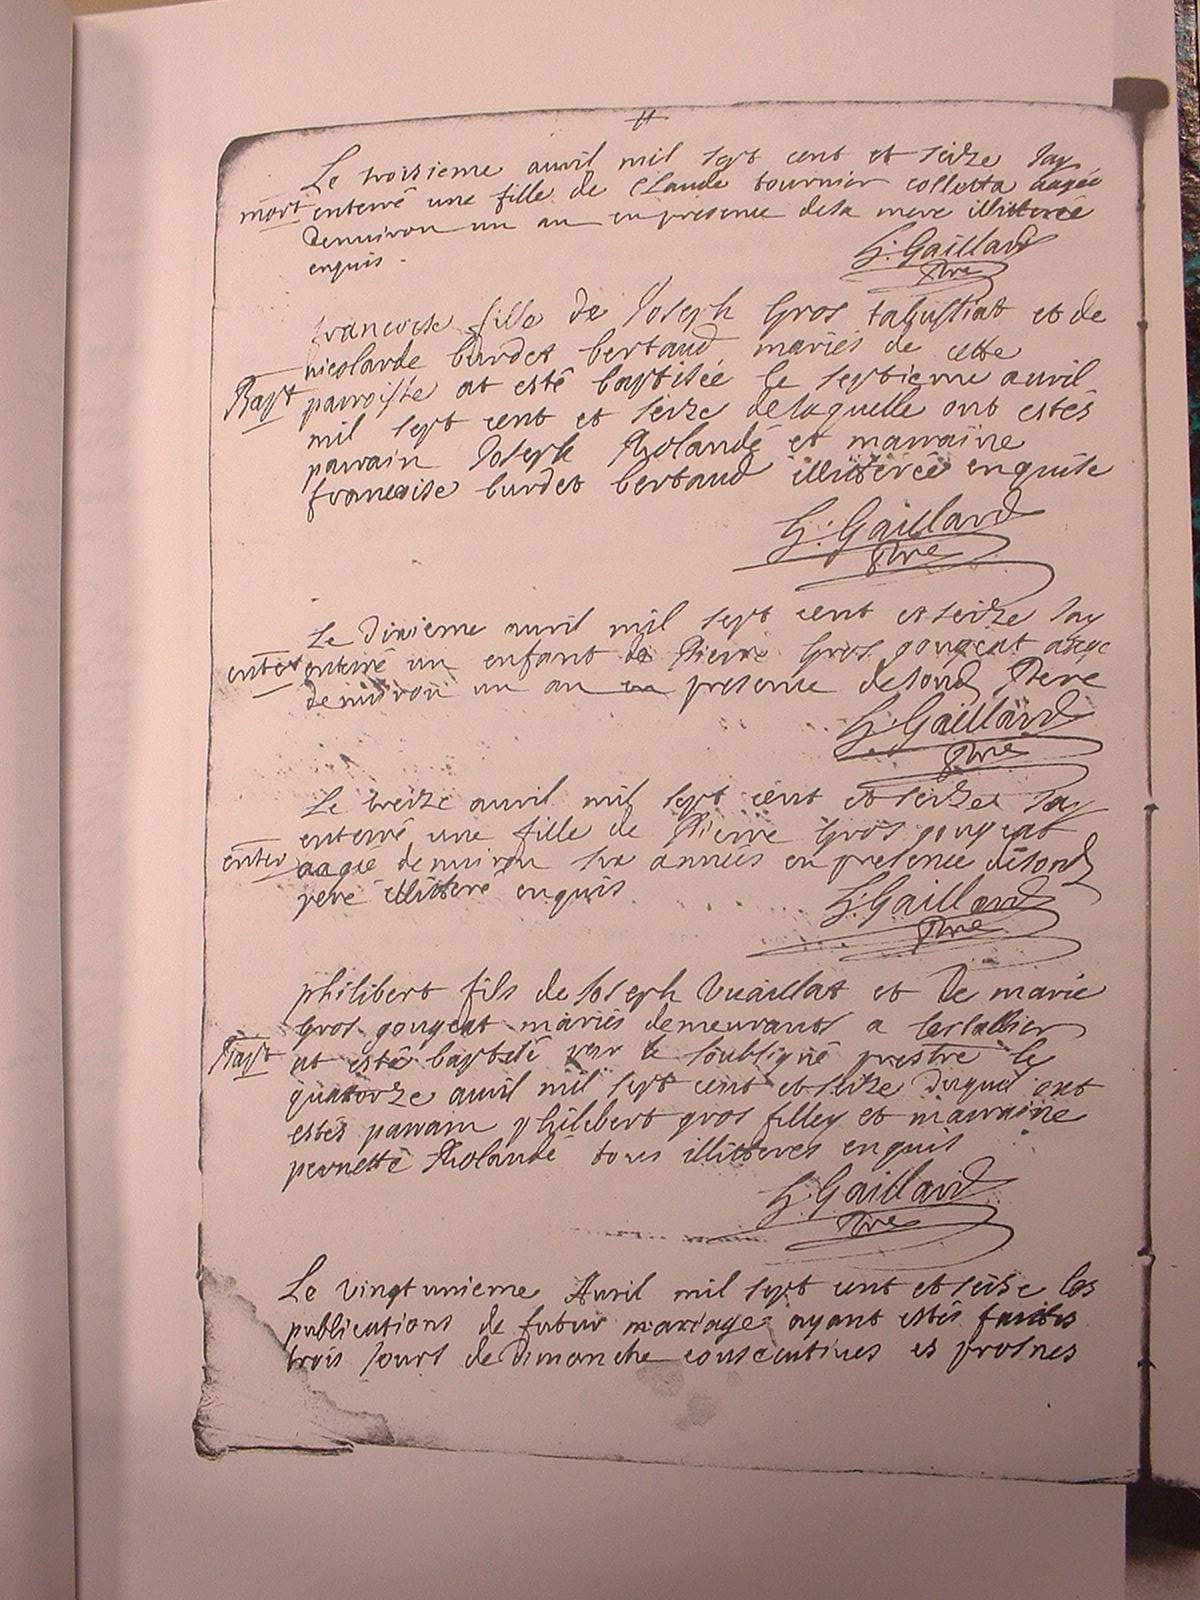 Le troisieme auril mil sept cent et seize Jay
mort enterré une fille de Claude tournier colletta aagée
denuiron un an en presence de sa mere illitterée
enquis.
h: Gaillard
ptre
francoise fille de Joseph Gros tabustiat et de
nicolarde burdet bertaud mariés de cette
Bapt parroisse at esté baptisée le septieme auril
mil sept cent et seize de laquelle ont estés
parrain Joseph Rolandé et marraine
francoise burdet bertaud illitterée enquise
h: Gaillard
ptre
Le dixieme auril mil sept cent et seize Jay
enter enterré un enfant de Pierre Gros gougeat aagé
denuiron un an en presence desond Pere
h: Gaillard
ptre
Le treize auril mil sept cent et seize Jay
enterré une fille de Pierre Gros gougeat
enter aagée denuiron six années en presence desond
pere illitteré enquis
h: Gaillard
ptre
philibert fils de Joseph Vuaillat et de marie
Gros gougeat mariés demeurants a
Bapt at esté baptisé par le soubsigné prestre le
quatorze auril mil sept cent et seize duquel ont
estés parrain philibert gros filley et marraine
pernette Rolandé tous illitteres enquis
h: Gaillard
ptre
Le vingtunieme Auril mil sept cent et seize les
publications de futur mariage ayant estés faites
trois Jours de Dimanche consecutiues es prosnes